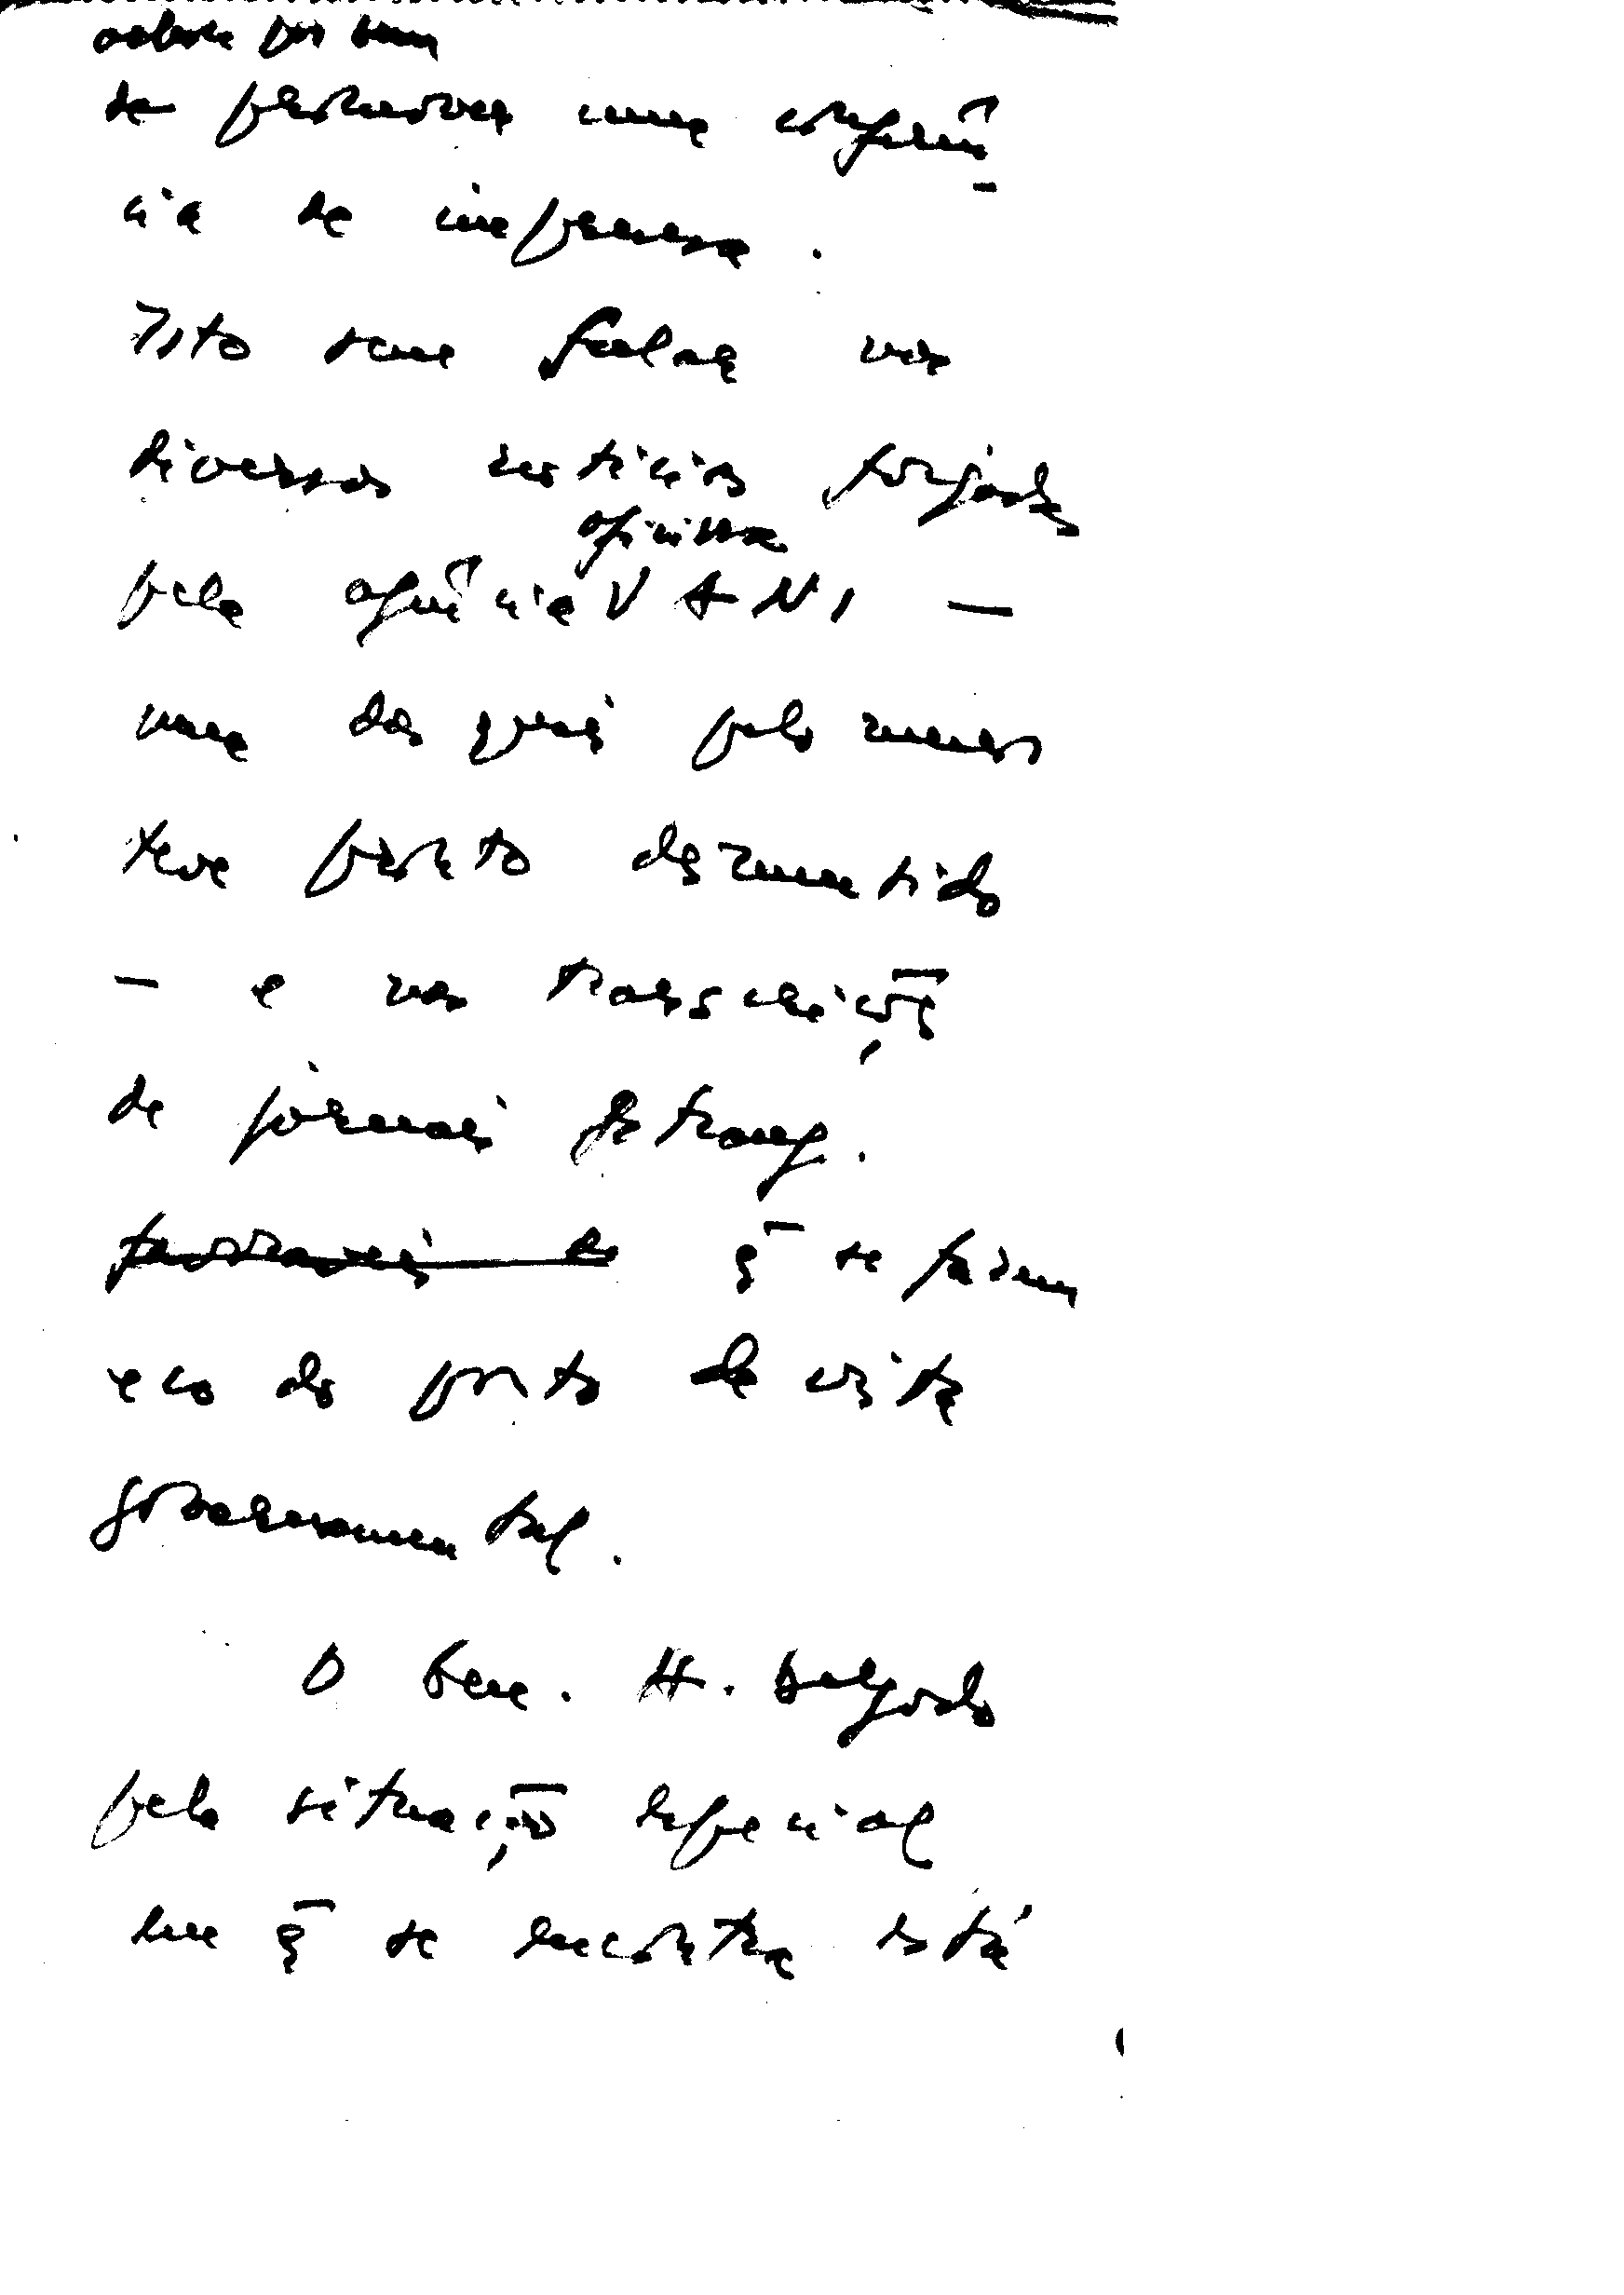 achou por bem
de promover uma conferên-
cia de imprensa.
Isto sem falar nas
diversas notícias forjadas
oficiosa
pela agência V ANI —
uma das quais pelo menos
teve pronto desmentido
— e nas transcriçõe
de jornais estrang.
favoraveis e q̄ se fazem
eco do ponto de vista
governamental.
O Gen. H. Delgado
pela situação especial
em q̄ se encontra está